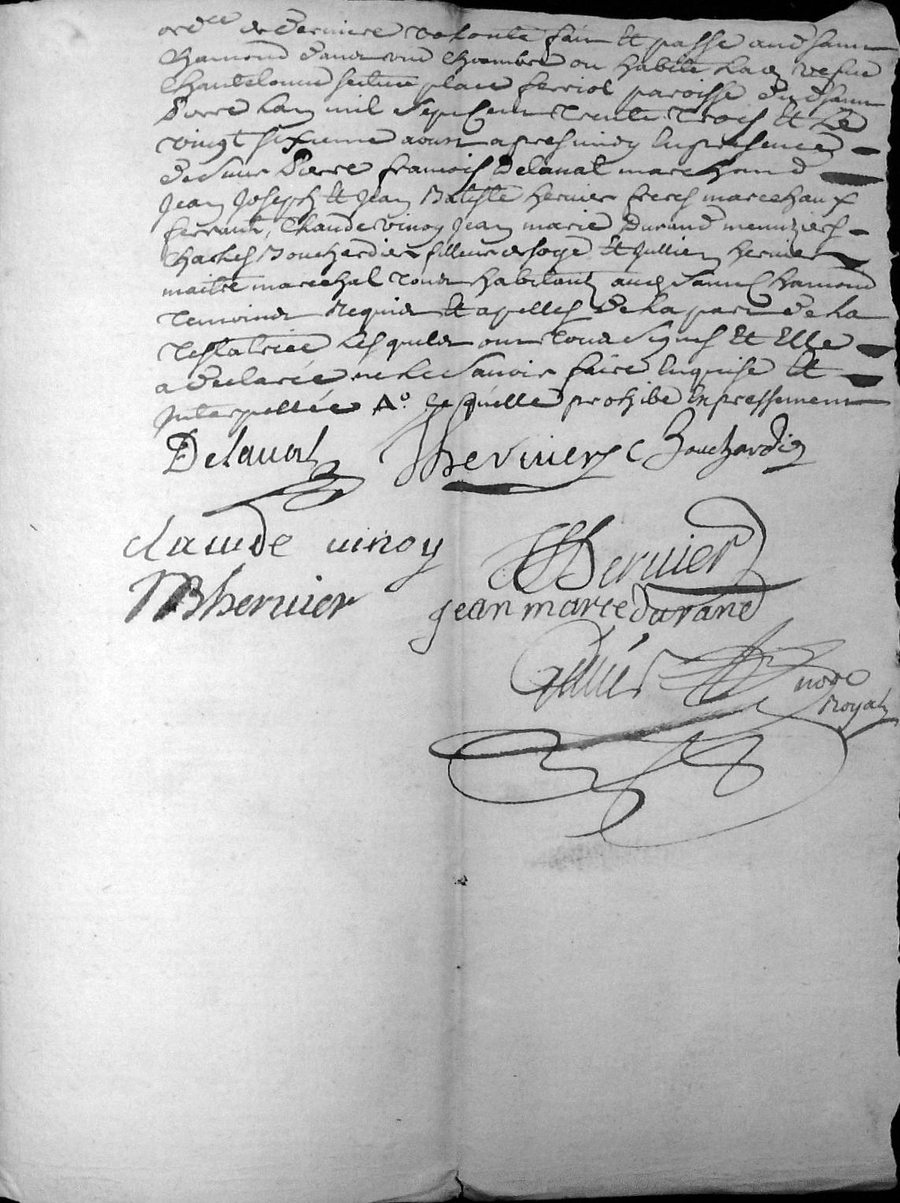 de derniere volonté fait et passé aud saint
chamond dans une chambre ou habite lad vefve
Chantelouve scituee place ferriol paroisse dud saint
Pierre lan mil sept cent trente trois et le
vingt sixieme aoust apres midy en presence
de sieur Pierre francois Delaval marchand
Jean Joseph et Jean Batiste hervier freres marechaux
ferrants, Claude vinoy Jean marie Durand menuziers
Charles Boucherdier filleur de soye et Jullien hervier
maitre marechal tous habitants aud saint Chamond
temoins requis et apellés de la part de la
testatrice lesquels ont tous signes et Elle
a declarée ne le savoir faire enquise et
interpellée Ao laquelle prohibe expressement
Delaval J hervier C Bouchardie
claude vinoy J J hervier
JB hervier jean marie durand
nore
Royal